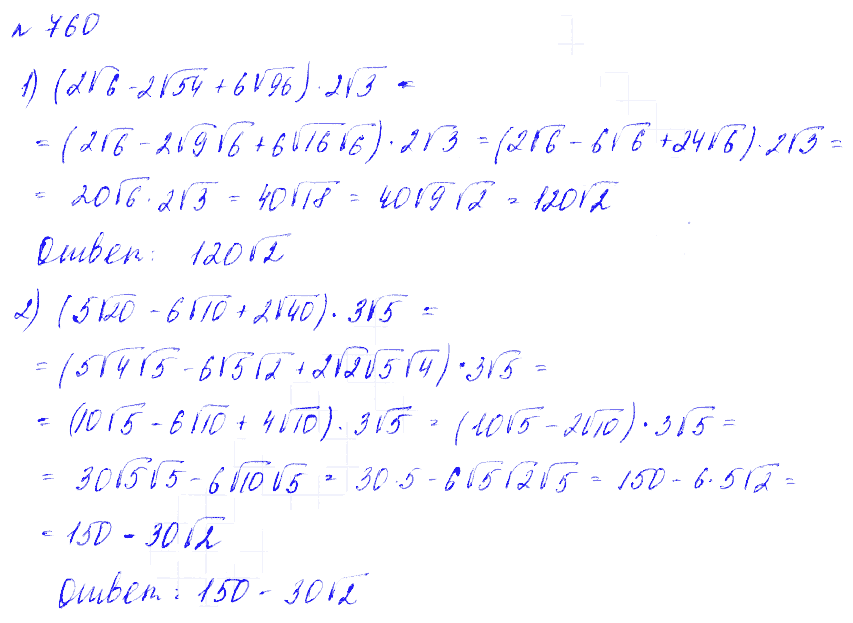 № 760
1) (2√6 - 2√54 + 6√96) · 2√3 =
= (2√6 - 2√9√6 + 6√16√6) · 2√3 = (2√6 - 6√6 + 24√6) · 2√3 =
= 20√6 · 2√3 = 40√18 = 40√9√2 = 120√2
Ответ: 120√2
2) (5√20 - 6√10 + 2√40) · 3√5 =
= (5√4√5 - 6√5√2 + 2√2√5√4) · 3√5 =
= (10√5 - 6√10 + 4√10) · 3√5 = (10√5 - 2√10) · 3√5 =
= 30√5√5 - 6√10√5 = 30·5 - 6√5√2√5 = 150 - 6·5√2 =
= 150 - 30√2
Ответ: 150 - 30√2